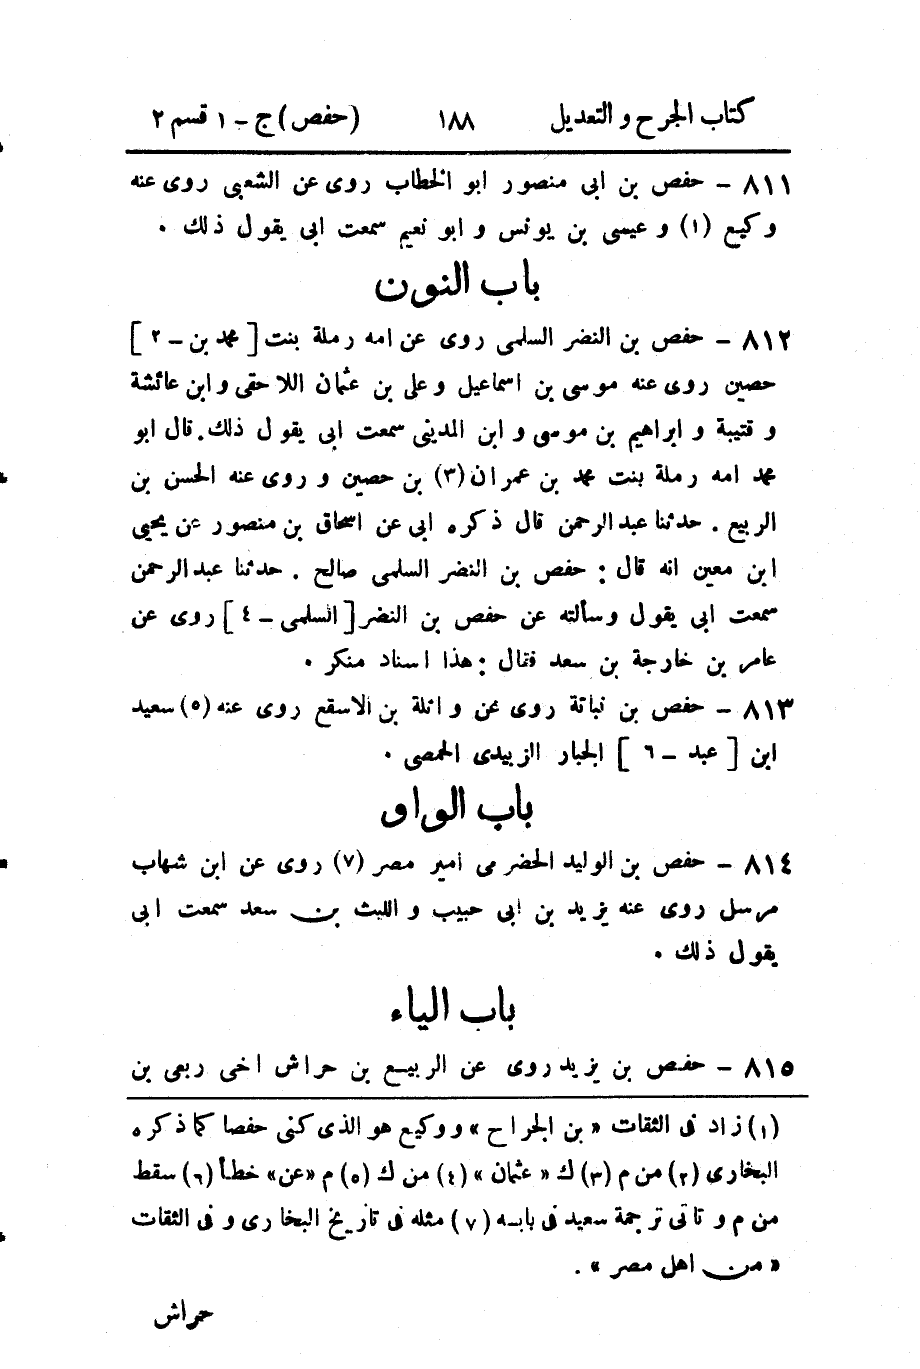 كتاب الجرح و التعديل ١٨٨ (حفص) ج - ١ قسم ٢
٨١١ - حفص بن ابى منصور ابو الخطاب روى عن الشعبى روى عنه
وكيع (١) و عيسى بن يونس و ابو نعيم سمعت ابى يقول ذلك .
باب النون
٨١٢ - حفص بن النضر السلمى روى عن امه رملة بنت [ محمد بن - ٢ ]
حصين روى عنه موسى بن اسماعيل و على بن عثمان اللاحقى و ابن عائشة
و قتيبة و ابراهيم بن موسى و ابن المدينى سمعت ابى يقول ذلك. قال ابو
محمد امه رملة بنت محمد بن عمران (٣) بن حصين و روى عنه الحسن بن
الربيع . حدثنا عبد الرحمن قال ذكره ابى عن اسحاق بن منصور عن يحيى
ابن معين انه قال : حفص بن النضر السلمى صالح . حدثنا عبد الرحمن
سمعت ابى يقول وسألته عن حفص بن النضر [ السلمى - ٤ ] روى عن
عامر بن خارجة بن سعد فقال : هذا اسناد منكر .
٨١٣ - حفص بن نباتة روى عن واثلة بن الاسقع روى عنه (٥) سعيد
ابن [ عبد - ٦ ] الجبار الزبيدى الحمصى .
باب الواو
٨١٤ - حفص بن الوليد الحضرمى امير مصر (٧) روى عن ابن شهاب
مرسل روى عنه يزيد بن ابى حبيب و الليث بن سعد سمعت ابى
يقول ذلك .
باب الياء
٨١٥ - حفص بن يزيد روى عن الربيع بن حراش اخى ربعى بن
(١) زاد فى الثقات « بن الجراح » و وكيع هو الذى كنى حفصا كما ذكره
البخارى (٢) من م (٣) ك « عثمان » (٤) من ك (٥) م «عن» خطأ (٦) سقط
من م و تاتى ترجمة سعيد فى بابه (٧) مثله فى تاريخ البخارى و فى الثقات
« من اهل مصر » .
حراش